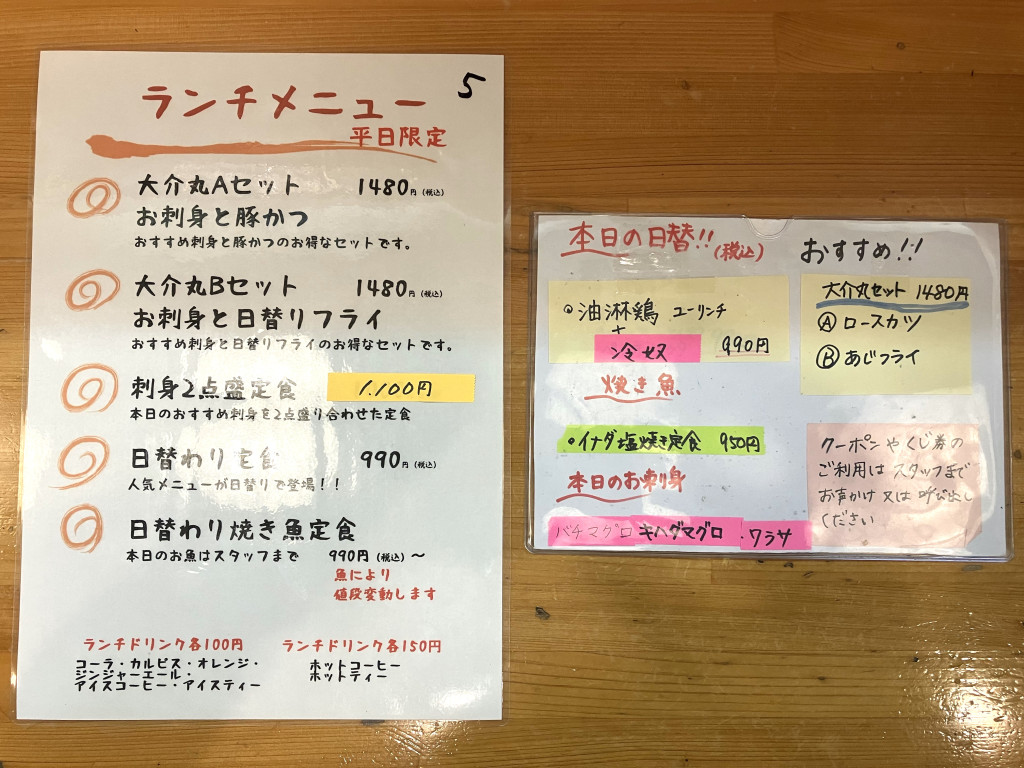 5
ランチメニュー
平日限定
大介丸Aセット 1480円(税込)
お刺身と豚かつ
おすすめ刺身と豚かつのお得なセットです。
大介丸Bセット 1480円(税込)
お刺身と日替りフライ
おすすめ刺身と日替りフライのお得なセットです。
刺身2点盛定食 1.100円
本日のおすすめ刺身を2点盛り合わせた定食
日替わり定食 990円(税込)
人気メニューが日替りで登場!!
日替わり焼き魚定食
本日のお魚はスタッフまで 990円(税込)〜
魚により
値段変動します
ランチドリンク各100円
コーラ・カルピス・オレンジ・
ジンジャーエール・
アイスコーヒー・アイスティー
ランチドリンク各150円
ホットコーヒー
ホットティー
本日の日替!!(税込)
油淋鶏 ユーリンチ
+
冷奴 990円
焼き魚
イナダ塩焼き定食 950円
本日のお刺身
バチマグロ キハダマグロ ・ワラサ
おすすめ!!
大介丸セット 1480円
Ⓐ ロースカツ
Ⓑ あじフライ
クーポンやくじ券の
ご利用は スタッフまで
お声かけ 又は 呼び出し
ください